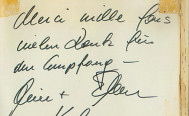 Merci mille fois
vielen Dank für
den Empfang –